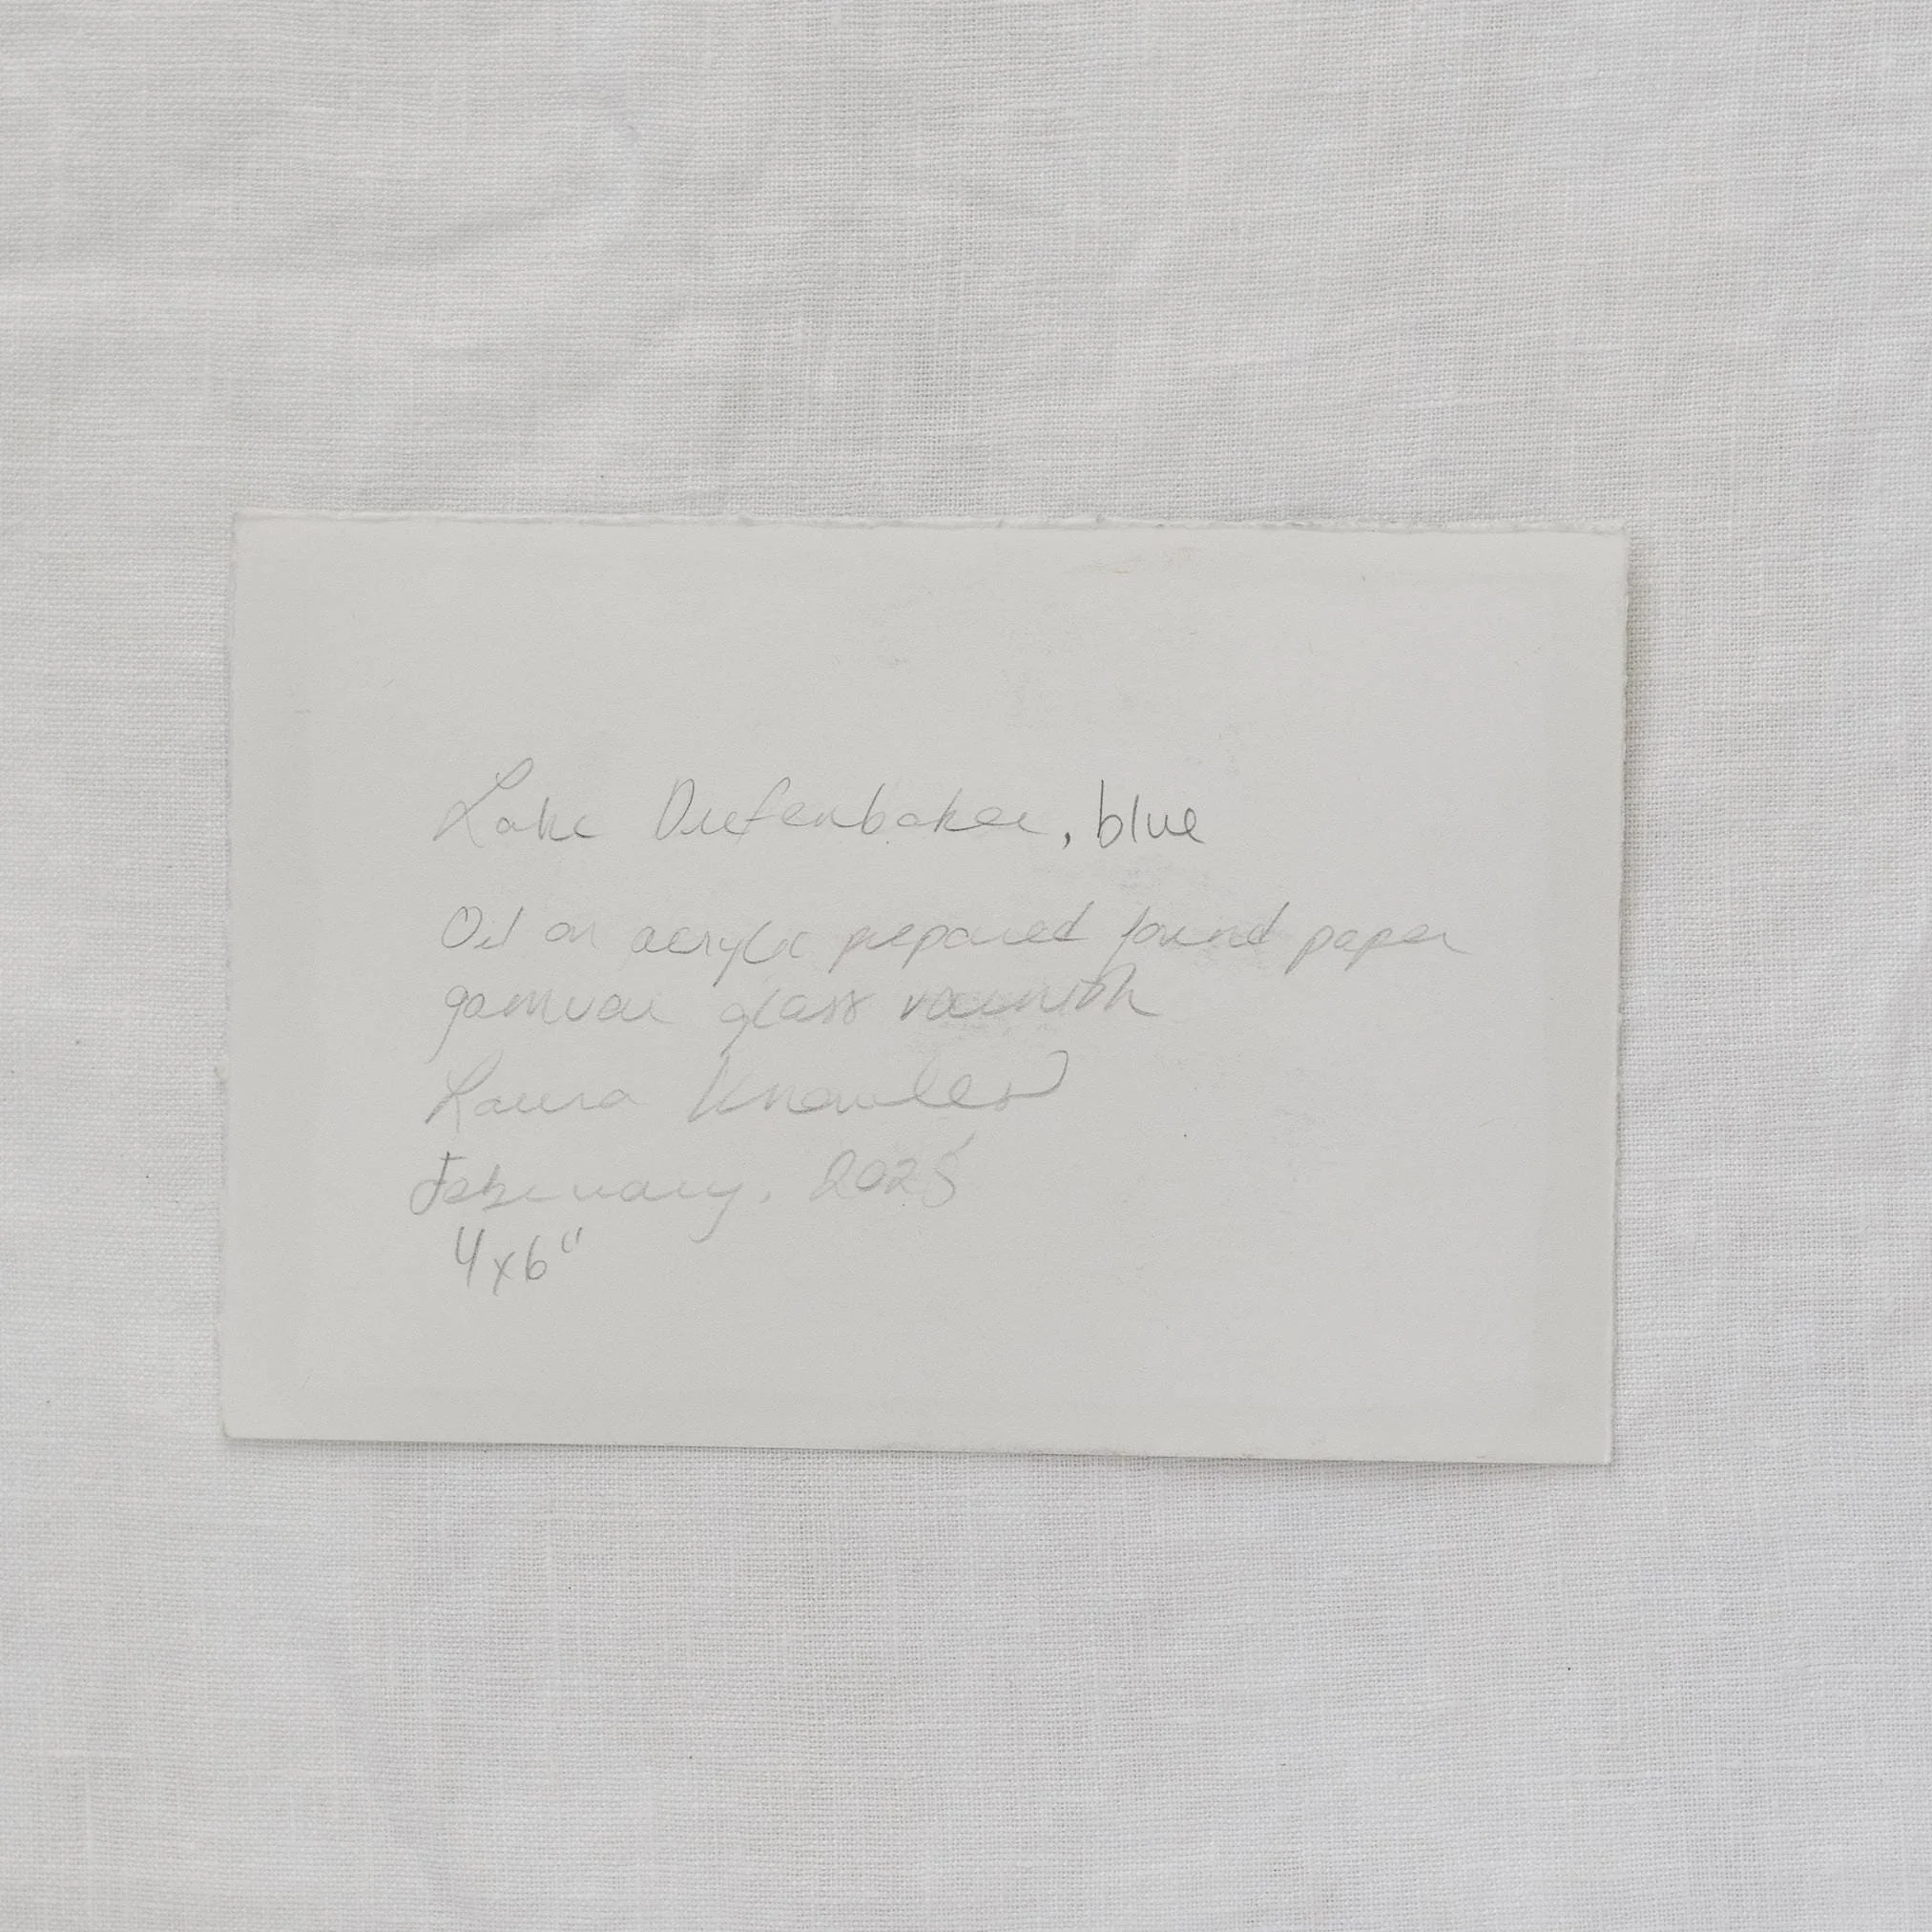 Lake Diefenbaker, blue
Oil on acrylic prepared found paper
gamvar gloss varnish
Laura Knowles
February, 2025
4x6"